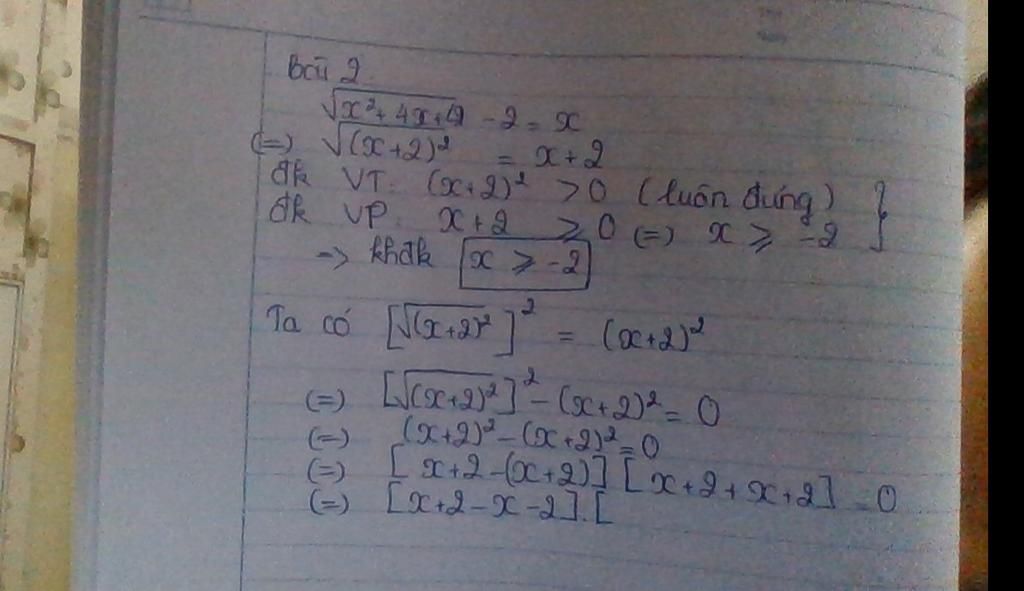 Bài 2
√x²+4x+4 - 2 = x
(=) √(x+2)² = x+2
đk VT: (x+2)² > 0 (luôn đúng)
đk VP: x+2 ⩾ 0 (=) x ⩾ -2
=> khđk x ⩾ -2
Ta có [√(x+2)²]² = (x+2)²
(=) [√(x+2)²]² - (x+2)² = 0
(=) (x+2)² - (x+2)² = 0
(=) [x+2-(x+2)] [x+2+x+2] = 0
(=) [x+2-x-2].[